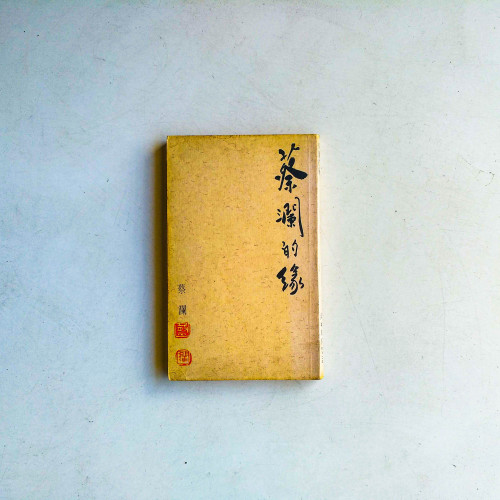 蔡瀾的緣
蔡瀾